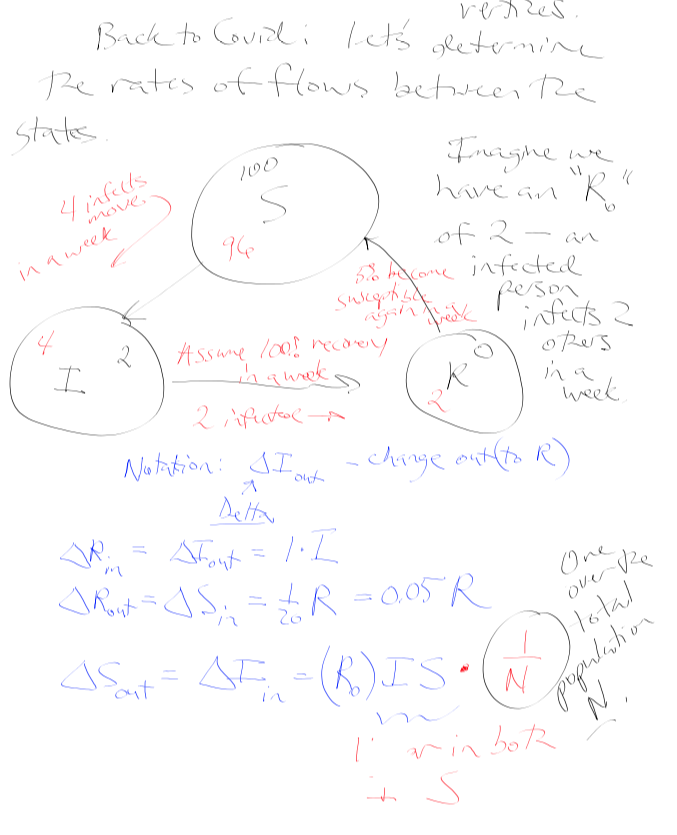 vertices.
Back to Covid: Let's determine
the rates of flows between the
states.
100
S
96
4 infects
move
in a week
Imagine we
have an "R₀"
of 2 — an
infected
person
infects 2
others
in a
week.
5% become
susceptible
again in a
week
4
I
2
Assume 100% recovery
in a week
2 infected →
R
0
2
Notation: ΔI_out – change out (to R)
↑
Delta
ΔR_in = ΔI_out = 1·I
ΔR_out = ΔS_in = 1/20 R = 0.05 R
ΔS_out = ΔI_in = (R₀) I S · 1/N
One
over the
total
population
N.
in both
S